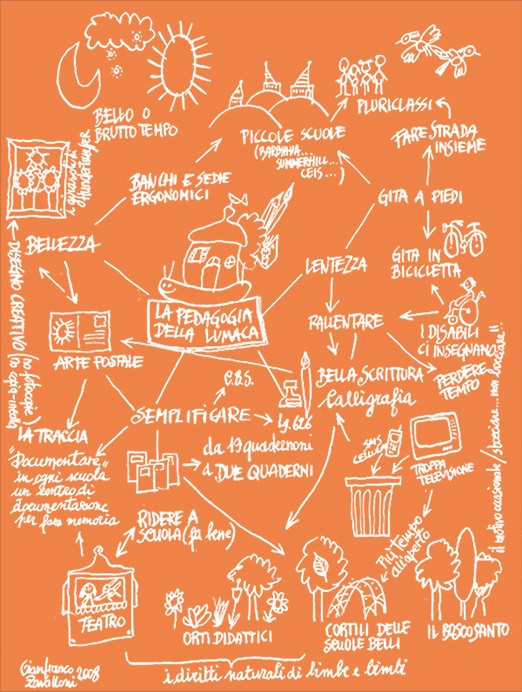 BELLO O
BRUTTO TEMPO
PLURICLASSI
PICCOLE SCUOLE
(BARBIANA...
SUMMERHILL...
CEIS...)
FARE STRADA
INSIEME
i girasoli di
Hundertwasser
BANCHI E SEDIE
ERGONOMICI
GITA A PIEDI
BELLEZZA
LENTEZZA
GITA IN
BICICLETTA
DISEGNO CREATIVO (no fotocopie)
LA PEDAGOGIA
DELLA LUMACA
RALLENTARE
I DISABILI
CI INSEGNANO
ARTE POSTALE
BELLA SCRITTURA
Calligrafia
PERDERE
TEMPO
SEMPLIFICARE
LA TRACCIA
da 19 quadernoni
a DUE QUADERNI
SMS
CELLULARI
TROPPA
TELEVISIONE
"Documentare"
in ogni scuola
un centro di
documentazione
per fare memoria
RIDERE A
SCUOLA (fa bene)
PIÙ TEMPO
all'aperto
il voto occasionale/
TEATRO
ORTI DIDATTICI
CORTILI DELLE
SCUOLE BELLI
IL BOSCO SANTO
i diritti naturali di bimbe e bimbi
Gianfranco
Zavalloni 2008